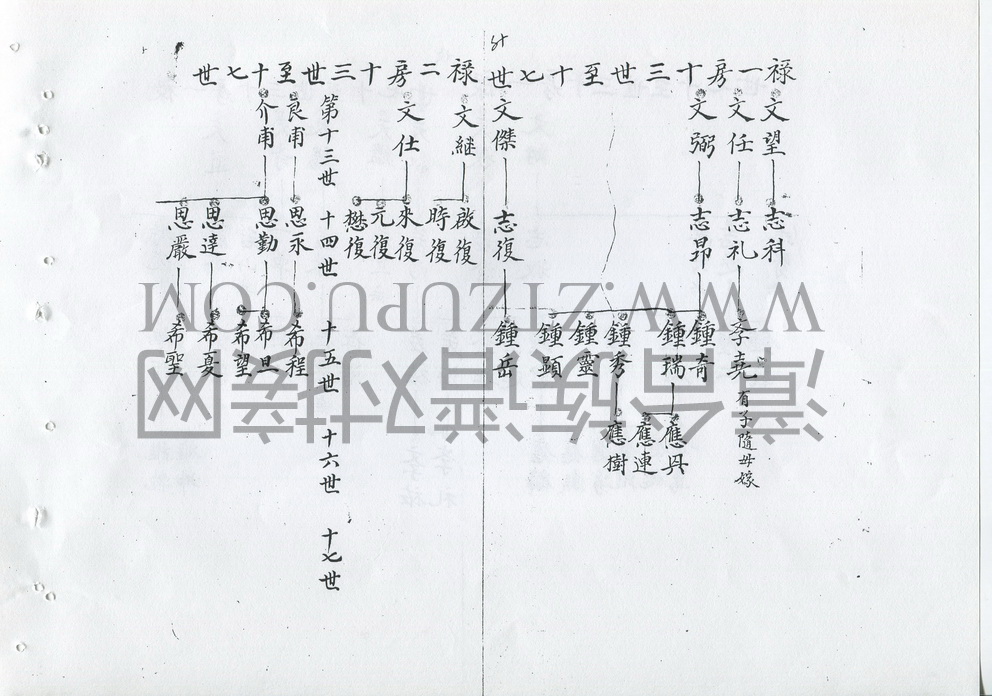 祿一房十三世至十七世
文望
志科
文任
志礼
李堯
有子隨母嫁
文弼
志昂
鍾奇
鍾瑞
應兴
應連
鍾秀
應樹
鍾靈
鍾顯
文傑
志復
鍾岳
祿二房十三世至十七世
文継
啟復
時復
文仕
來復
元復
懋復
第十三世
十四世
十五世
十六世
十七世
良甫
思永
希程
介甫
思勤
希旦
希望
思達
希憂
思嚴
希聖
WWW.ZTZUPU.COM
漳台族谱对接网